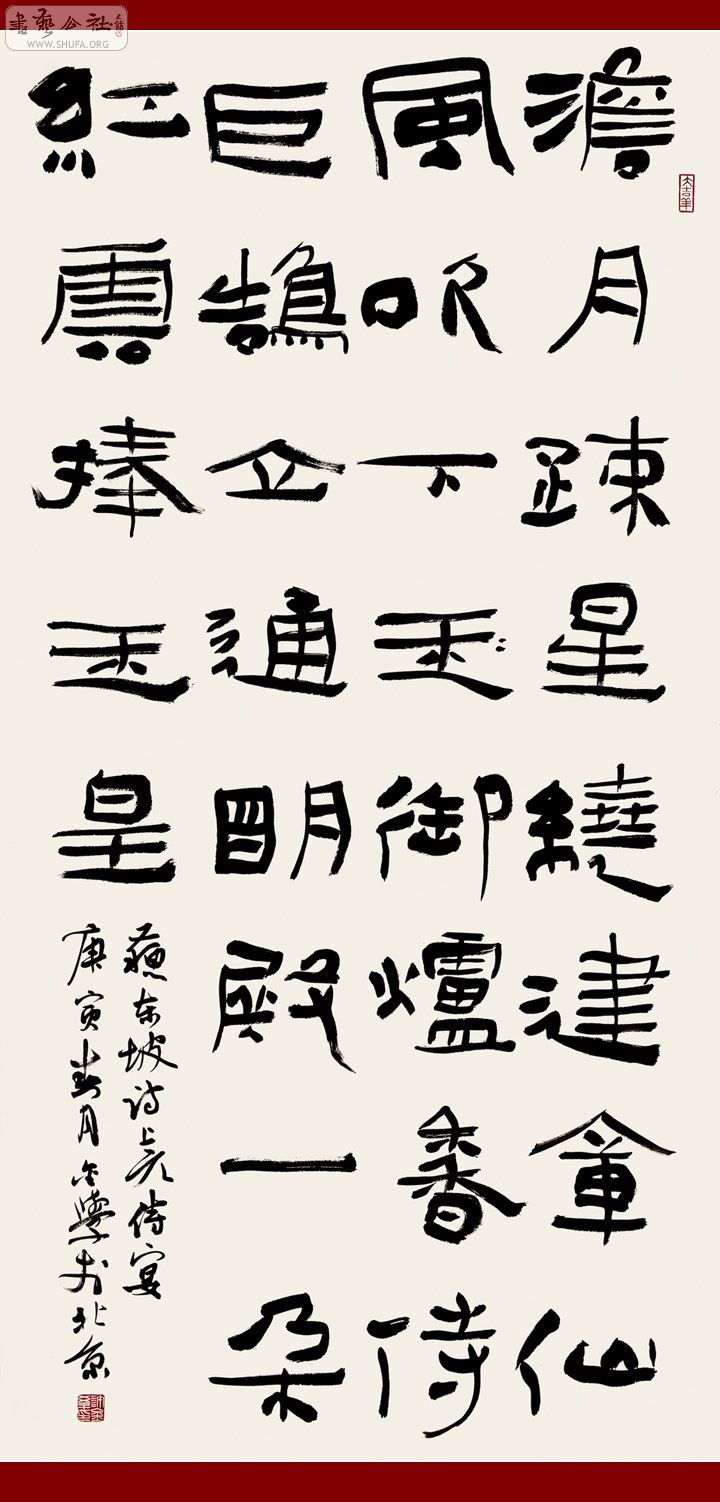 書藝公社
WWW.SHUFA.ORG
澹月疎星繞建章仙
風吹下玉御爐香侍
臣鵠立通明殿一朵
紅雲捧玉皇
蘇東坡詩上元侍宴
庚寅春月金學於北京
大吉羊